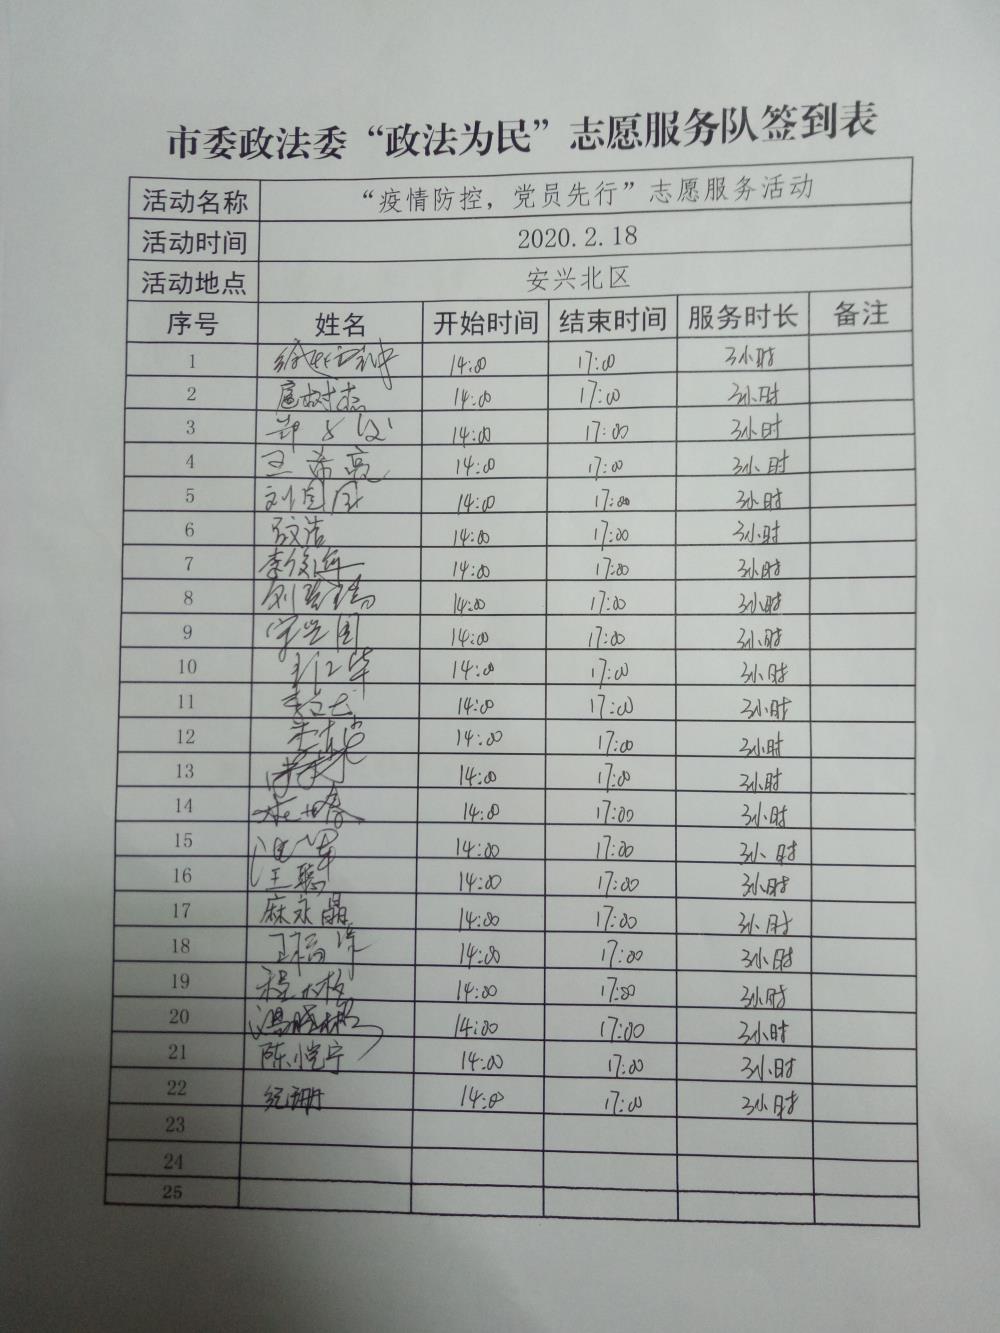 市委政法委“政法为民”志愿服务队签到表
活动名称 “疫情防控，党员先行”志愿服务活动
活动时间 2020.2.18
活动地点 安兴北区
序号 姓名 开始时间 结束时间 服务时长 备注
1 14:00 17:00 3小时
2 14:00 17:00 3小时
3 14:00 17:00 3小时
4 王希亮 14:00 17:00 3小时
5 14:00 17:00 3小时
6 14:00 17:00 3小时
7 14:00 17:00 3小时
8 14:00 17:00 3小时
9 宋兴国 14:00 17:00 3小时
10 14:00 17:00 3小时
11 14:00 17:00 3小时
12 14:00 17:00 3小时
13 14:00 17:00 3小时
14 14:00 17:00 3小时
15 14:00 17:00 3小时
16 王聪 14:00 17:00 3小时
17 麻永晶 14:00 17:00 3小时
18 14:00 17:00 3小时
19 14:00 17:00 3小时
20 14:00 17:00 3小时
21 陈恺宁 14:00 17:00 3小时
22 纪珊 14:00 17:00 3小时
23
24
25